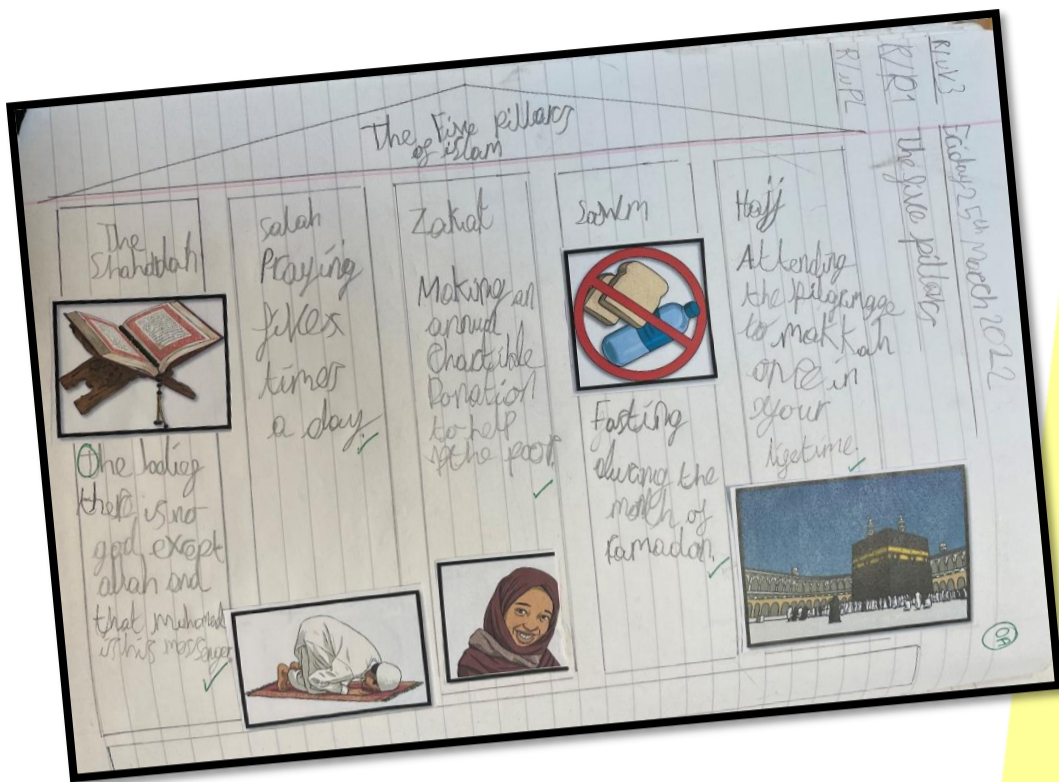 R/UV3 Friday 25th March 2022
R/R1 The five pillars
R/MPL
The Five pillars
of islam
The
Shahadah
The beolieg
there is no
god except
allah and
that muhamad
is his messenger
salah
Praying
fives
times
a day.
Zakat
Making an
annual
Charitible
Donation
to help
the poor.
Sawm
Fasting
during the
month of
ramadan.
Hajj
Attending
the pilgrimage
to makkah
once in
your
ligetime.
OA